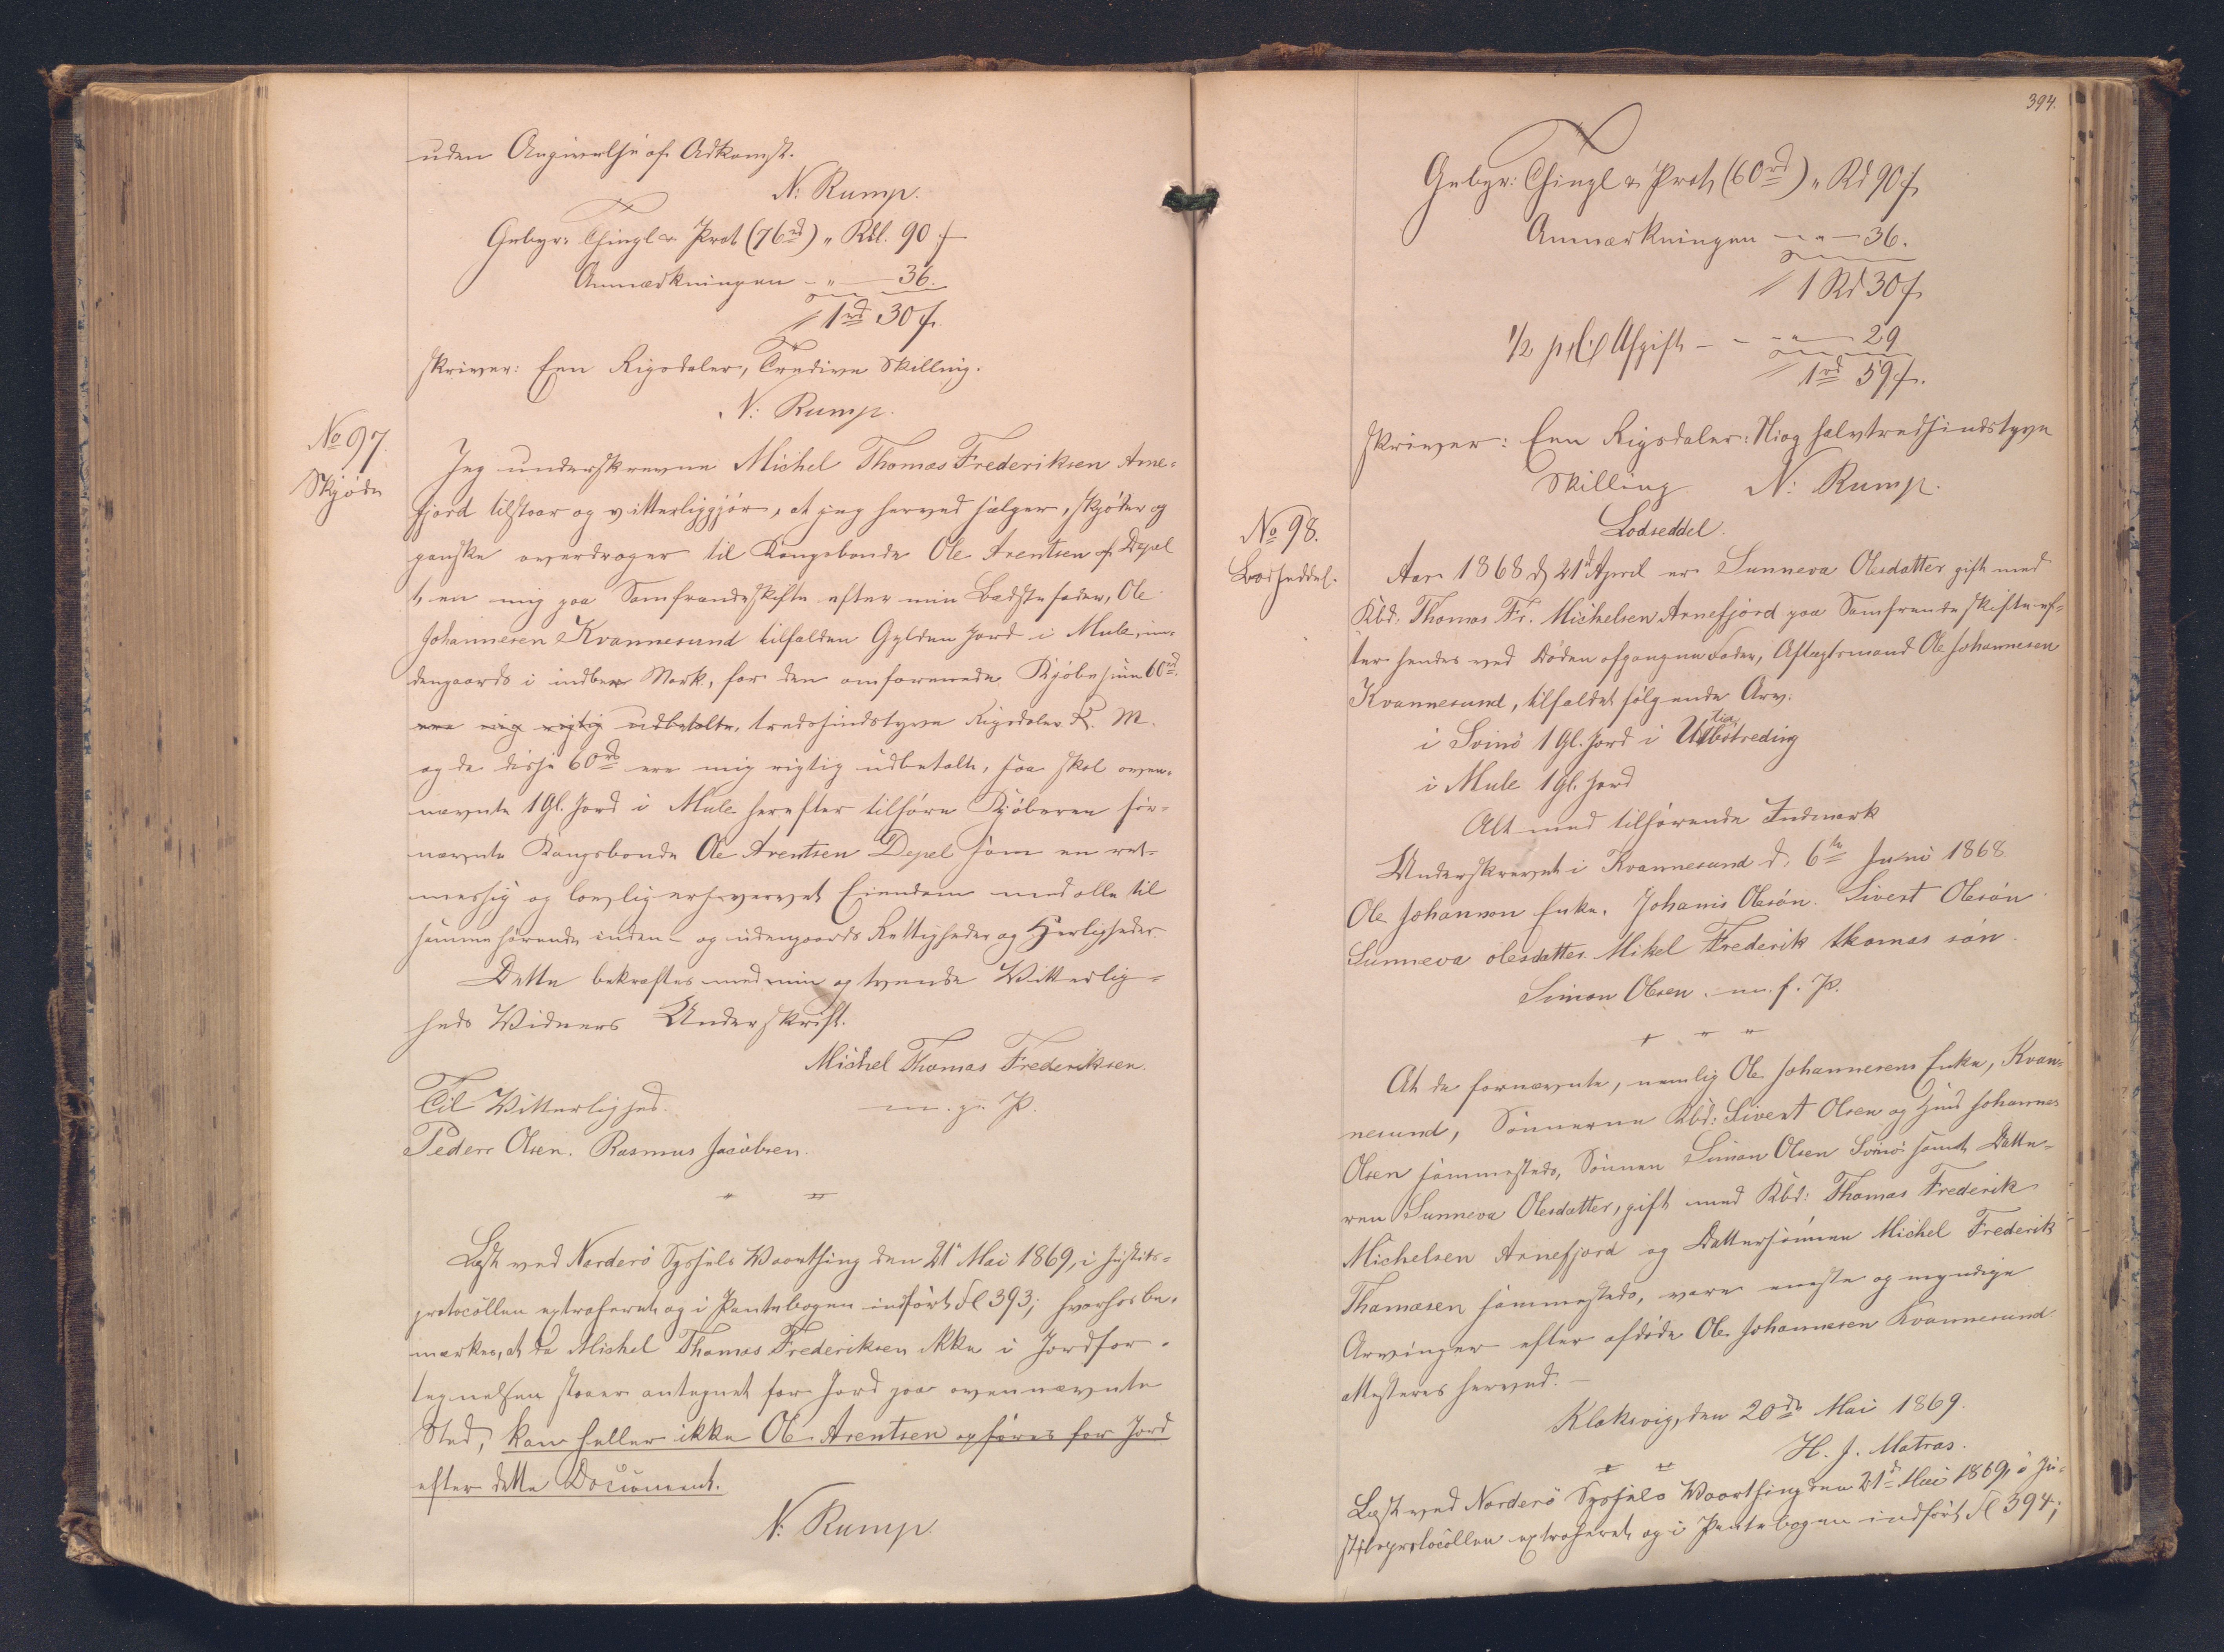 uden Angivelse af Adkomst.
N: Rump.
Gebyr: Thingl & Prot (76rd) " Rdl. 90 ß
Anmærkningen - " - 36.
1rd 30 ß.
skriver: Een Rigsdaler, Tredive Skilling.
N: Rump.
No 97.
Skjøde
Jeg underskrevne Michel Thomas Frederiksen Arne-
fjord tilstaar og vitterliggjör, at jeg herved sælger, skjöder og
ganske overdrager til Kongsbonde Ole Arentsen af Depel
1, en mig paa Samfrændeskifte efter min Bedstefader, Ole
Johannesen Kvannesund tilfalden Gylden Jord i Mule, in-
dengaards i indbe Mark, for den omforenede Kjöbesum 60rd.
ere mig rigtig udbetalte, tredsindstyve Rigsdaler R. M.
og da disse 60rd ere mig rigtig udbetalte, saa skal oven-
nævnte 1 Gl. Jord i Mule herefter tilhöre Kjöberen för-
nævnte Kongsbonde Ole Arentsen Depel som en ret-
mæssig og lovlig erhvervet Eiendom med alle til
samme hörende inden- og udengaards Rettigheder og Herligheder.
Dette bekræftes med min og tvende Vitterlig-
heds Vidners Underskrift.
Michel Thomas Frederiksen.
m. p. P.
Til Vitterlighed.
Peder Olsen. Rasmus Jacobsen.
Læst ved Norderö Syssels Vaarthing den 21 Mai 1869, i Justits-
protocollen extraheret og i Pantebogen indfört Fl 393; hvorhos be-
mærkes, at da Michel Thomas Frederiksen ikke i Jordfor-
tegnelsen staaer antegnet for Jord paa ovennævnte
Sted, kan heller ikke Ole Arentsen opföres for Jord
efter dette Document.
N: Rump.
394.
Gebyr: Thingl & Prot (60rd) " Rd 90 ß
Anmærkningen - " - 36.
1 Rd 30 ß
1/2 pCt Afgift - - " - 29
1rd 59 ß.
skriver: Een Rigsdaler: Niog halvtredsindstyve
Skilling N: Rump.
No 98.
Lodseddel.
Lodseddel.
Aar 1868 d 21d April er Sunneva Olesdatter gift med
Kbd: Thomas Fr. Michelsen Arnefjord paa Samfrændeskifte ef-
ter hendes ved Döden afgangne Fader, Aftægtsmand Ole Johannesen
Kvannesund, tilfaldet fölgende Arv:
i Svinö 1 Gl. Jord i
i Mule 1 Gl. Jord
Alt med tilhörende Indmark
Underskrevet i Kvannesund d. 6te Juni 1868
Ole Johannson Enke. Johanis Olesön. Sivert Olesön
Sunneva olesdatter. Mikel Frederik thomas sön.
Simon Olsen. m. f. P.
At de fornævnte, nemlig Ole Johannesens Enke, Kvan-
nesund, Sönnerne Kbd: Sivert Olsen og Huus Johannes
Olsen sammesteds, Sönnen Simon Olsen Svinö samt Datte-
ren Sunneva Olesdatter, gift med Kbd: Thomas Frederik
Michelsen Arnefjord og Dattersönnen Michel Frederik
Thomasen sammesteds, vare eneste og myndige
Arvinger efter afdöde Ole Johannesen Kvannesund
attesteres herved. -
Klaksvig, den 20de Mai 1869.
H. J. Matras.
Læst ved Norderö Syssels Vaarthing den 21d Mai 1869, i Ju-
stitsprotocollen extraheret og i Pantebogen indfört Fl 394;